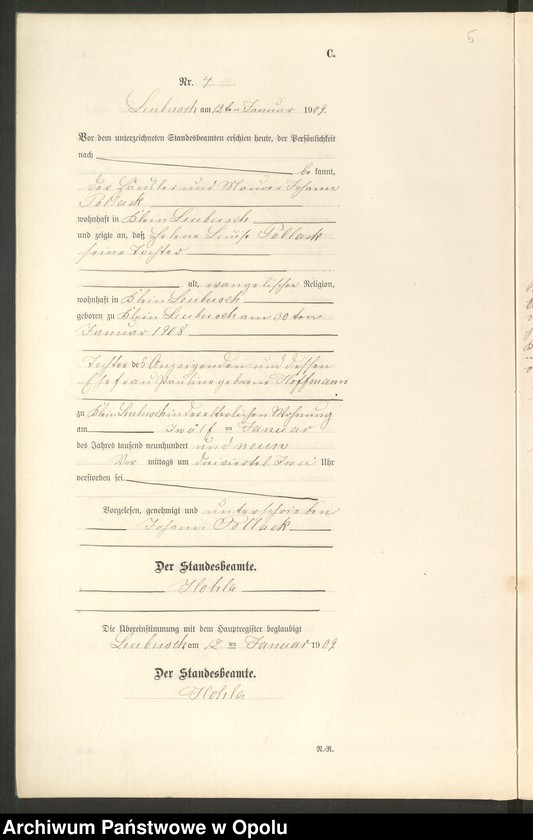 5
C.
Nr. 4
Leubusch am 12ten Januar 1909.
Vor dem unterzeichneten Standesbeamten erschien heute, der Persönlichkeit
nach be kannt,
der Häusler und Maurer Johann
Pollack
wohnhaft in Klein Leubusch
und zeigte an, daß Helene Luise Pollack
seine Tochter
alt, evangelischer Religion,
wohnhaft in Klein Leubusch
geboren zu Klein Leubusch am 30ten
Januar 1908
Tochter des Anzeigenden und dessen
Ehefrau Pauline geborene Hoffmann
zu Klein Leubusch in der elterlichen Wohnung
am zwölf ten Januar
des Jahres tausend neunhundert und neun
Vor mittags um dreiviertel zwei Uhr
verstorben sei
Vorgelesen, genehmigt und unterschrieben
Johann Pollack
Der Standesbeamte.
Hohla
Die Übereinstimmung mit dem Hauptregister beglaubigt
Leubusch am 12 ten Januar 1909
Der Standesbeamte.
Hohla
N.-R.
Archiwum Państwowe w Opolu